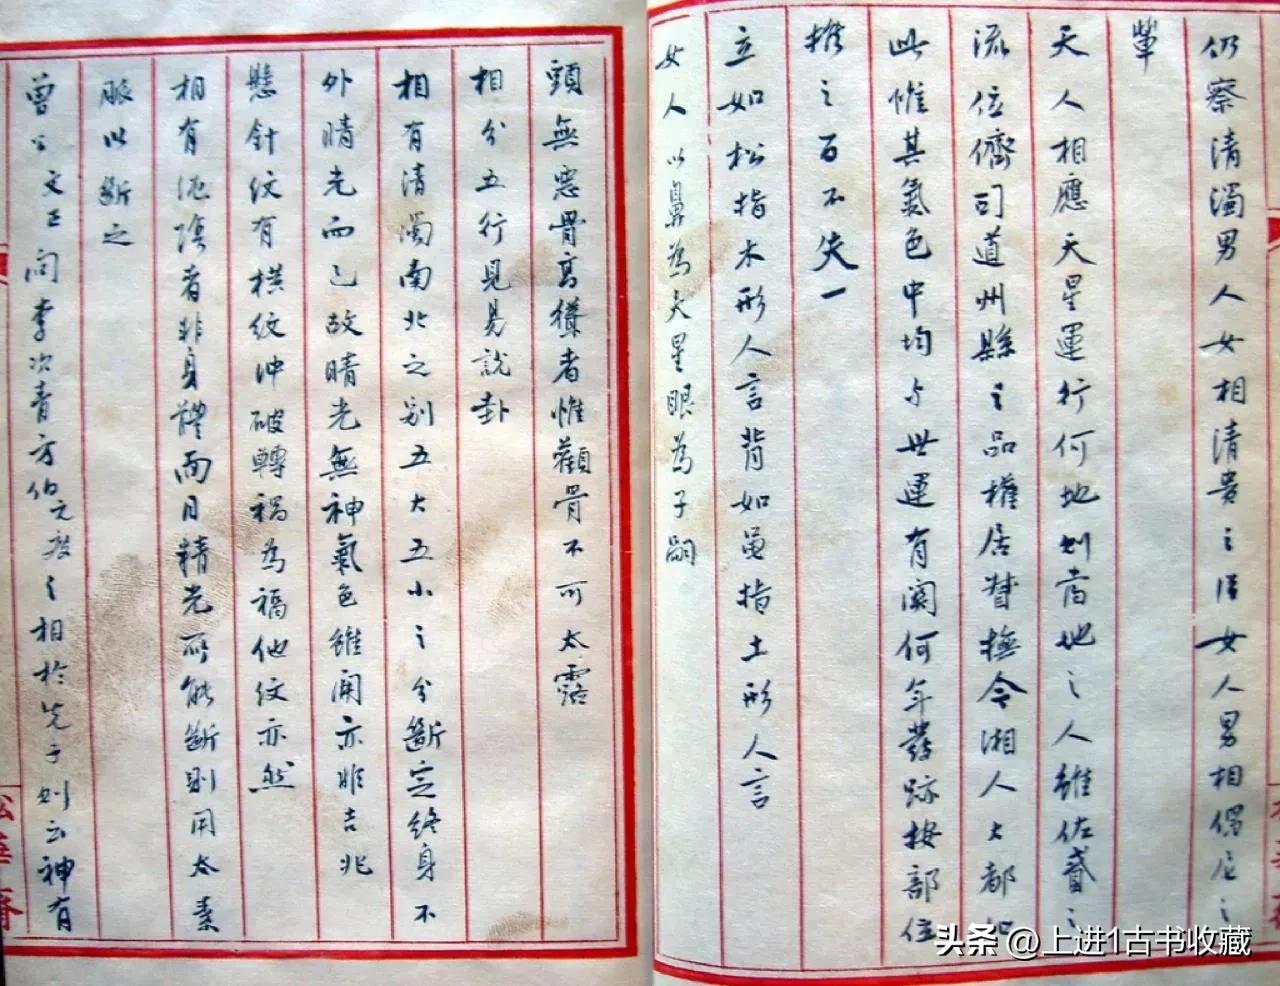 仍察清濁男人女相清貴之活女人男相偶居之
輩
天人相應天星運行何地則當地之人雖佐貳之
流位儕司道州縣之品權居督撫今湘人大都如
此惟其氣色中均與世運有關何年發跡按部位
推之百不失一
立如松指木形人言背如黽指土形人言
女人以鼻為夫星眼為子嗣
頭無惡骨高聳者惟顴骨不可太露
相分五行見易說卦
相有清濁南北之別五大五小之分斷定終身不
外睛光而已故睛光無神氣色雖開亦非吉兆
懸針紋有橫紋沖破轉禍為福他紋亦然
相有泥陰者非身體面目精光所能斷則用太素
脈以斷之
曾公文正問李次青方伯元度之相於先子則云神有
松華齋
头条 @上进1古书收藏